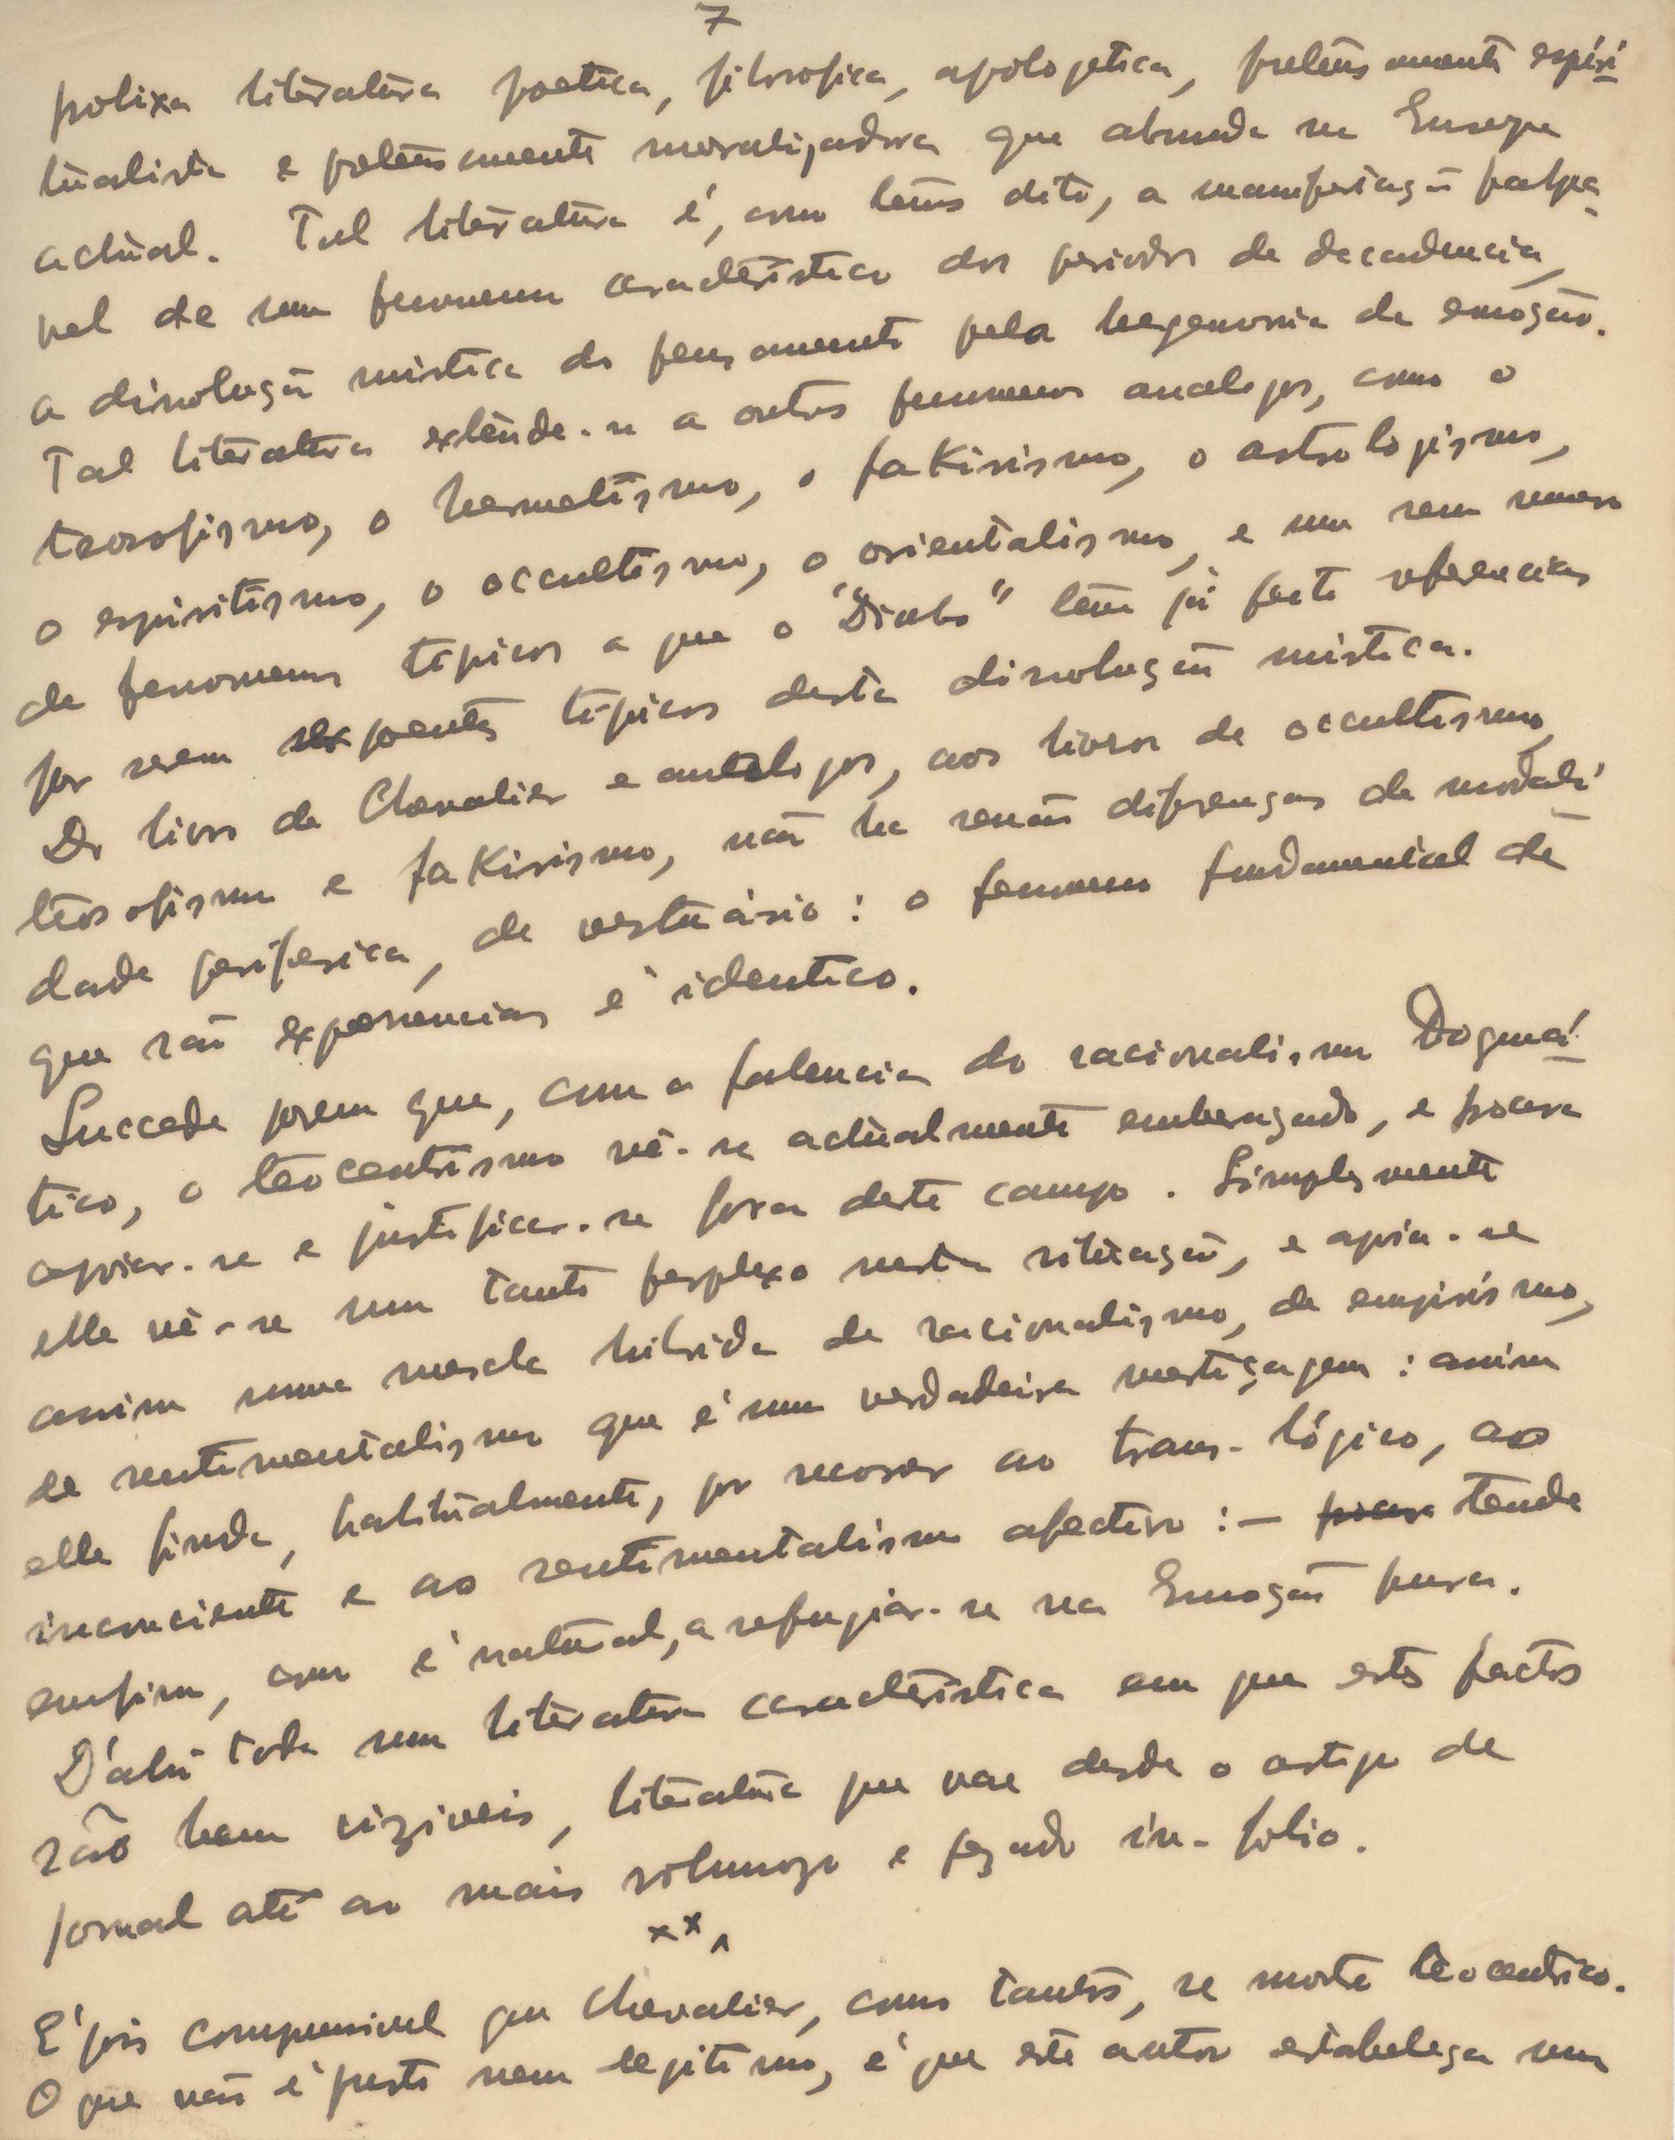 7
prolixa literatura poetica, filosofica, apologetica, pretensamente espiri-
tualista e pretensamente moralizadora que abunda na Europa
actual. Tal literatura é, como temos dito, a manifestação palpa-
vel de um fenomeno caracteristico dos periodos de decadencia,
a dissolução mistica do pensamento pela hegemonia da emoção.
Tal literatura extende-se a outros fenomenos analogos, como o
teosofismo, o hermetismo, o fakirismo, o astrologismo,
o espiritismo, o occultismo, o orientalismo, e um sem numero
de fenomenos tipicos a que o "Diabo" tem já feito referencias
por serem expoentes tipicos desta dissolução mistica.
Do livro de Chevalier e analogos, aos livros de occultismo,
teosofismo e fakirismo, não ha senão diferenças de modali-
dade periferica, de vestuário: o fenomeno fundamental de
que são exponencias é identico.
Succede porem que, com a falencia do racionalismo Dogmá-
tico, o teocentrismo vê-se actualmente embaraçado, e procura
apoiar-se e justificar-se fora deste campo. Simplesmente
elle vê-se um tanto perplexo nesta situação, e apoia-se
assim numa mescla hibrida de racionalismo, de empirismo,
de sentimentalismo que é uma verdadeira mestiçagem: assim
elle finda, habitualmente, por recorrer ao trans-lógico, ao
inconsciente e ao sentimentalismo afectivo: – procura tende
emfim, como é natural, a refugiar-se na Emoção pura.
D'ahi toda uma literatura caracteristica em que estes factos
são bem viziveis, literatura que vae desde o artigo de
jornal até ao mais volumozo e pezado in-folio.
x x ^
É pois compreensivel que Chevalier, como tantos, se mostre teocentrico.
O que não é justo nem legitimo, é que este autor estabeleça uma